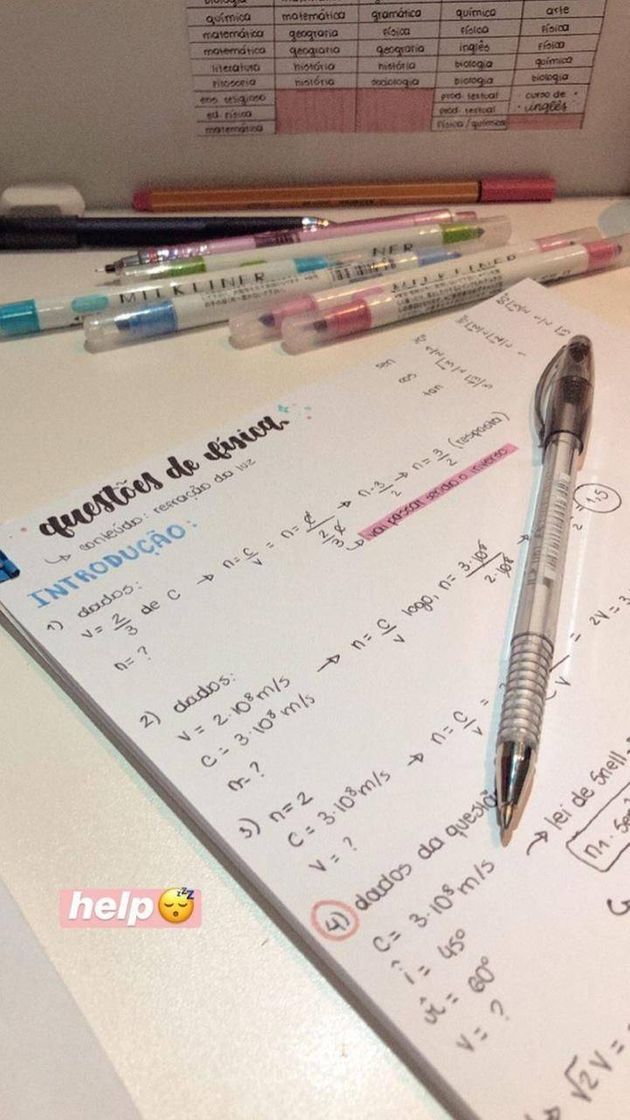 química matemática gramática química arte
matemática geografia física física física
matemática geografia geografia inglês física
literatura história história biologia química
filosofia história sociologia biologia biologia
ens. religioso prod. textual curso de
ed. física prod. textual inglês
matemática física/química
MILDLINER
NER
MILDLINER
sen
cos
tan
questões de física
↳ conteúdo: refração da luz
INTRODUÇÃO:
1) dados:
v = 2/3 de c → n = c/v = n = c/(2/3 c) → n = 3/2 (resposta)
n = ?
↳ vai passar sendo o inverso
2) dados:
v = 2·10⁸ m/s
c = 3·10⁸ m/s → n = c/v logo, n = 3·10⁸/2·10⁸ 1,5
n = ?
3) n = 2
c = 3·10⁸ m/s → n = c/v = 2v = 3
v = ?
4) dados da questão → lei de Snell
c = 3·10⁸ m/s n1·Sen
i = 45°
r̂ = 60°
v = ?
√2 v =
help